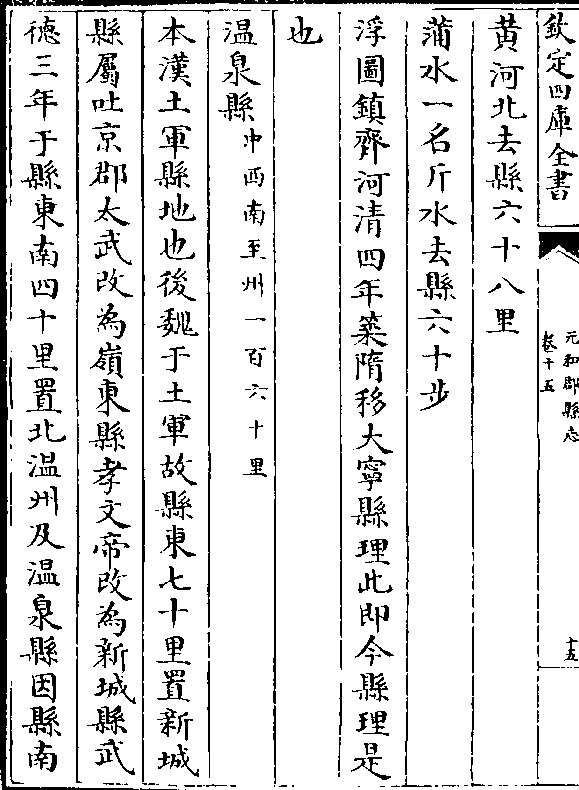 欽定四庫全書
元和郡縣志
卷十五
十五
黄河北去縣六十八里
蒲水一名斤水去縣六十步
浮圖鎮齊河清四年築隋移大寧縣理此即今縣理是
也
温泉縣中西南至州一百六十里
本漢土軍縣地也後魏于土軍故縣東七十里置新城
縣屬吐京郡太武改為嶺東縣孝文帝改為新城縣武
徳三年于縣東南四十里置北温州及温泉縣因縣南